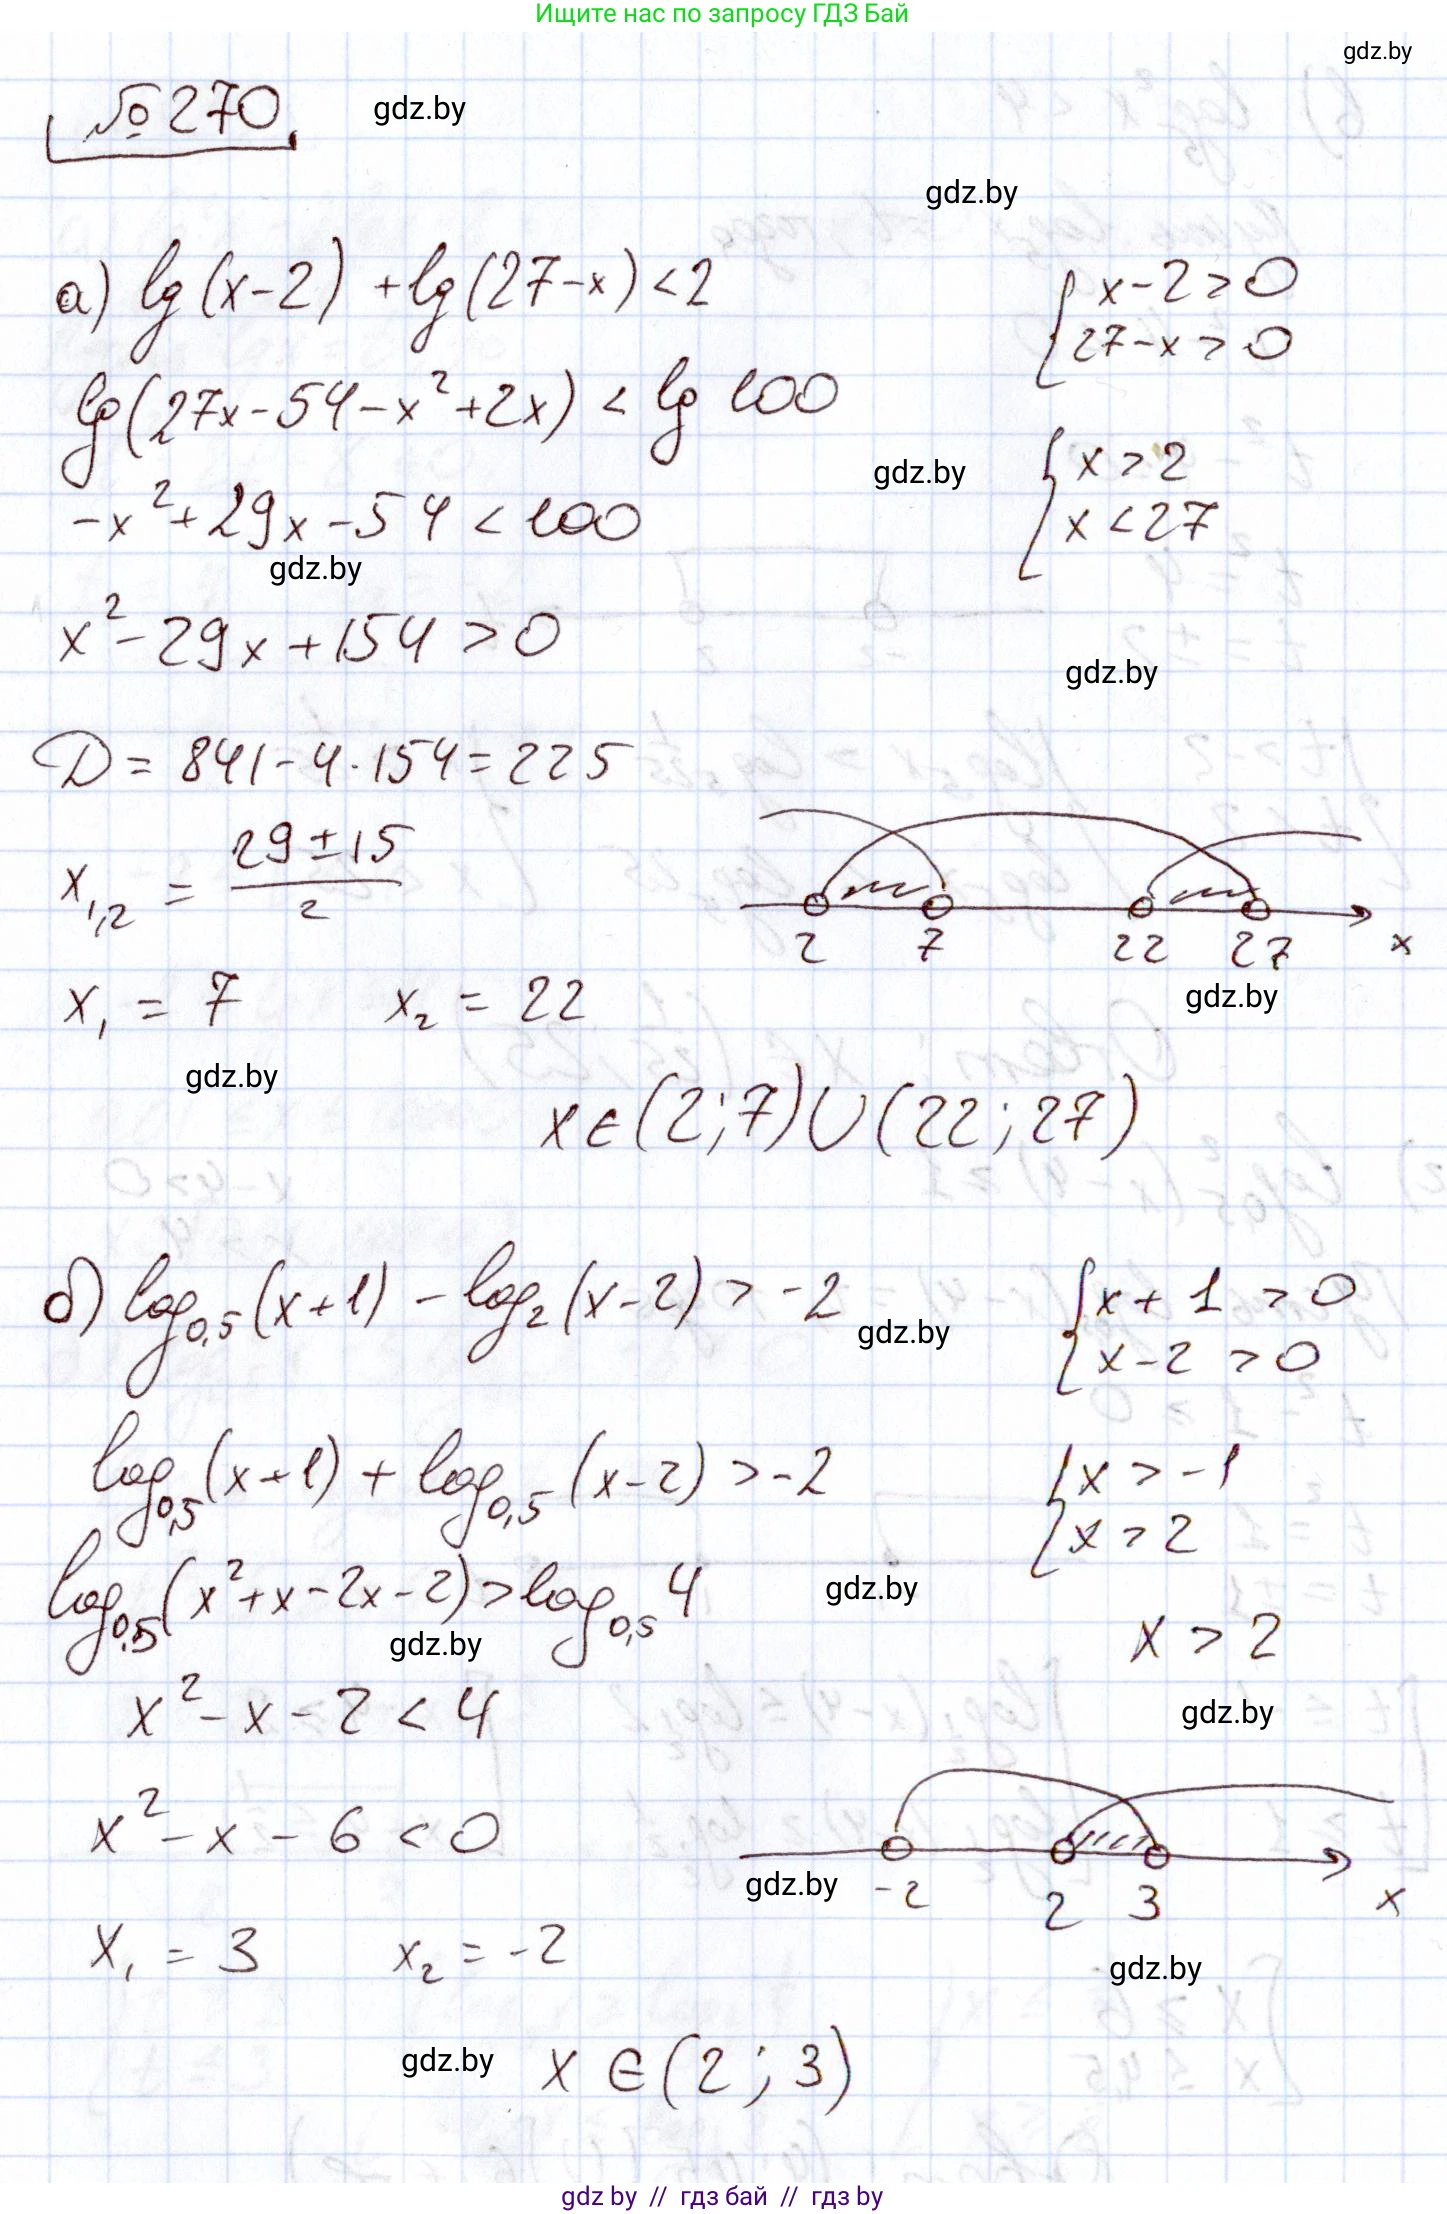 Ищите нас по запросу ГДЗ Бай
gdz.by
№270
gdz.by
gdz.by
а) lg(x-2) + lg(27-x) < 2
{x-2>0
27-x>0
lg(27x-54-x²+2x) < lg 100
gdz.by
{x>2
x<27
-x²+29x-54<100
gdz.by
x²-29x+154>0
gdz.by
D = 841-4·154=225
x₁,₂ = (29±15)/2
2 7 22 27 x
gdz.by
x₁ = 7 x₂ = 22
gdz.by
x∈(2;7)∪(22;27)
б) log₀,₅(x+1) - log₂(x-2) > -2
{x+1>0
x-2>0
gdz.by
log₀,₅(x+1) + log₀,₅(x-2) > -2
{x>-1
x>2
log₀,₅(x²+x-2x-2)>log₀,₅4
gdz.by
gdz.by
x > 2
x²-x-2<4
gdz.by
x²-x-6<0
gdz.by
-2 2 3 x
x₁ = 3 x₂ = -2
gdz.by
gdz.by
x ∈ (2;3)
gdz by // гдз бай // гдз by